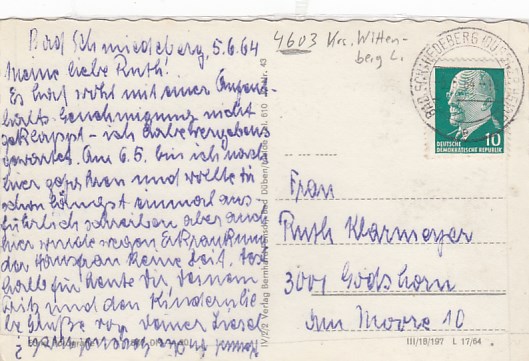 Bad Schmiedeberg, 5.6.64
Meine liebe Ruth!
Es hat wohl mit einer Aufent-
halts-Genehmigung nicht
geklappt - ich habe vergebens
gewartet. Am 6.5. bin ich nach
hier gefahren und wollte Dir
schon längst einmal aus-
führlich schreiben aber auch
hier wurde wegen Erkrankung
der Hausfrau keine Zeit. Des-
halb für heute Dir, deinem
Fritz und den Kindern lie-
be Grüße von deiner Liesel
4603 Krs. Witten-
berg L.
BAD SCHMIEDEBERG (DÜBENER HEIDE)
DEUTSCHE
DEMOKRATISCHE REPUBLIK
10
Frau
Ruth Klarmeyer
3001 Godshorn
Am Moore 10
III/18/197 L 17/64